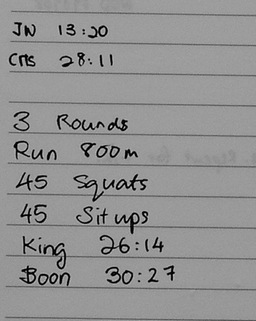 JN 13:20
CMS 28:11
3 Rounds
Run 800m
45 Squats
45 Sit ups
King 26:14
Boon 30:27